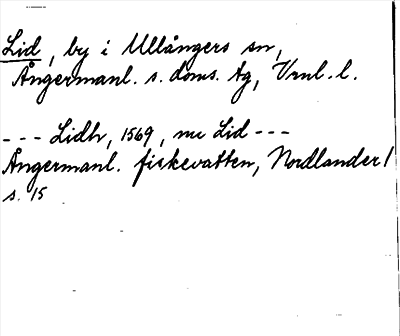 Lid, by i Ullångers sn,
Ångermanl. s. doms. tg, Vrnl. l.
--- Lidh, 1569, nu Lid ---
Ångermanl. fiskevatten, Nordlander /
s. 15